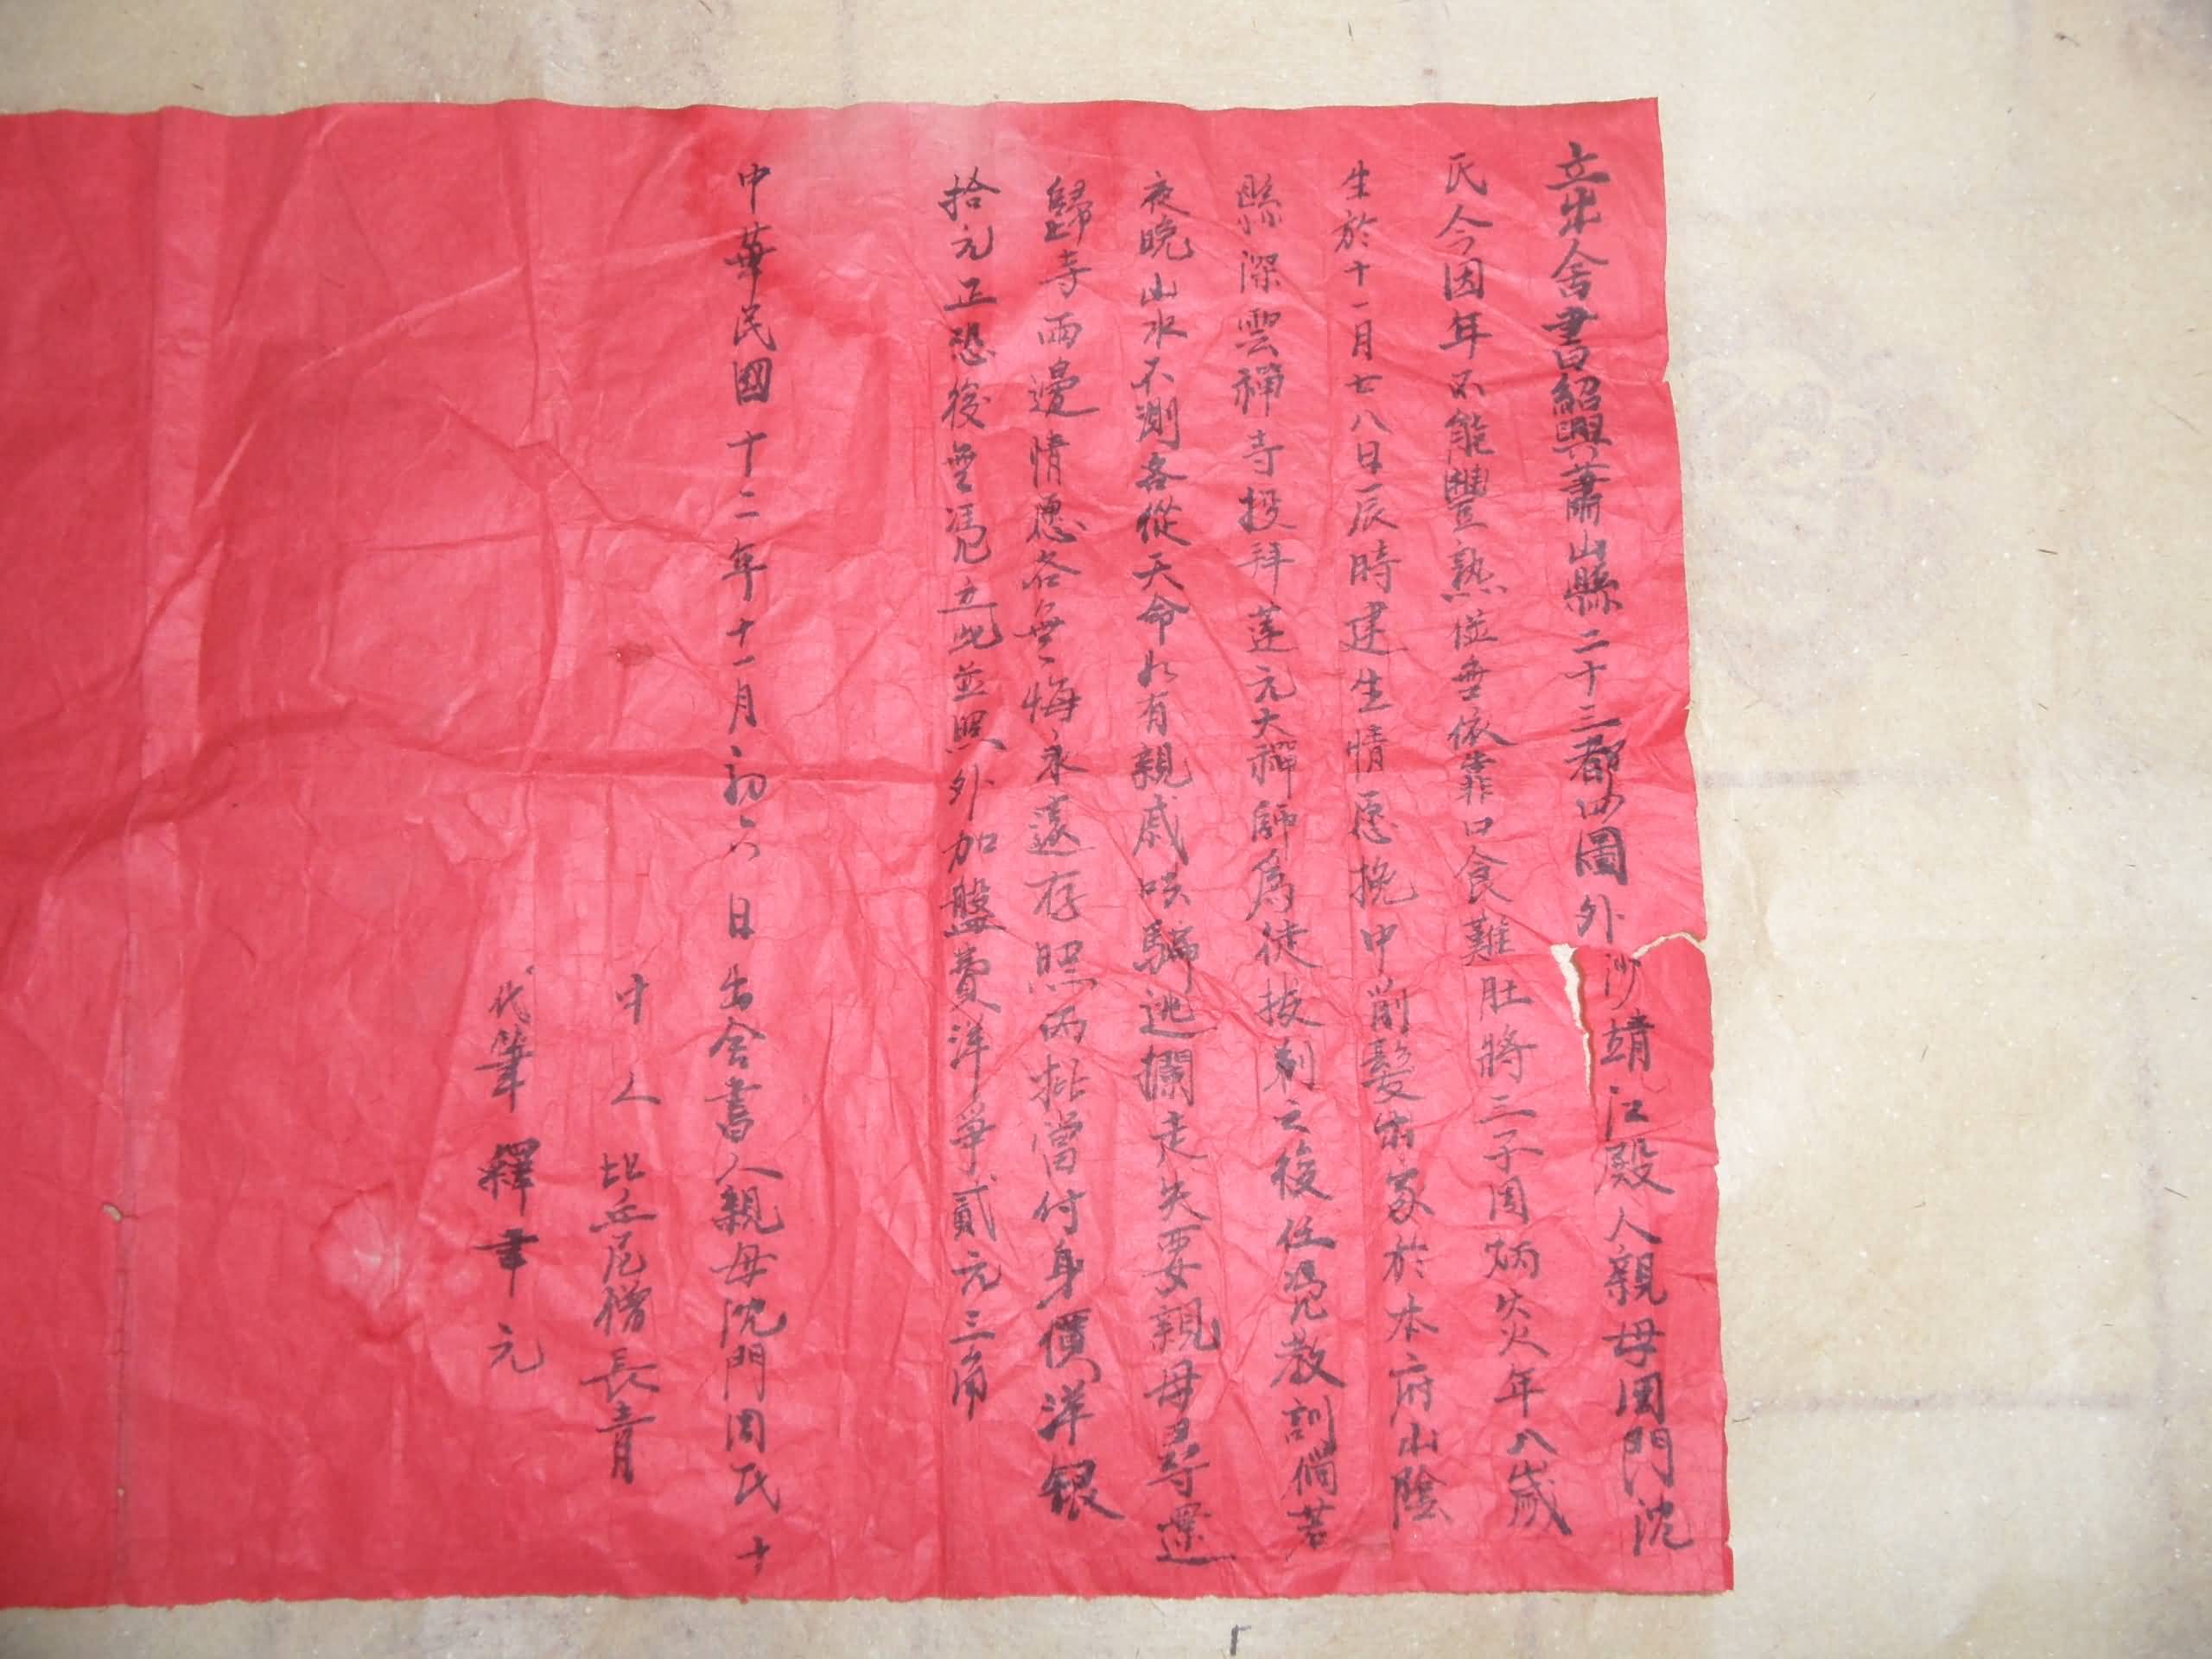 立出舍書紹興蕭山縣二十三都四圖外沙靖江殿人親母周門沈
氏今因年不能豐熟並無依靠口食難肚將三子周炳炎年八歲
生於十一月廿八日辰時建生情愿挽中削髮出家於本府山陰
縣深雲禪寺投拜蓮元大禪師為徒披剃之後任憑教訓倘若
夜晚山水不測各從天命如有親戚哄騙逃攔走失要親母尋還
歸寺兩邊情愿各無悔永遠存照兩批當付身價洋銀
拾元正恐後無憑立此並照外加盤費洋爭貳元三角
中華民國十二年十一月初六日出舍書人親母沈門周氏十
中人比丘尼僧長青
代筆釋聿元